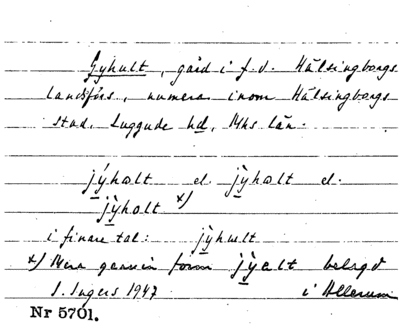 Gyhult, gård i f.d. Hälsingborgs
landsförs., numera inom Hälsingborgs
stad, Luggude hd, Mhs län.
jýhølt el jỳhølt el.
jỳhølt x)
i finare tal: jỳhult
x) Mera genuin form jỳelt belagd
S. Ingers 1947 i Allerum
Nr 5701.